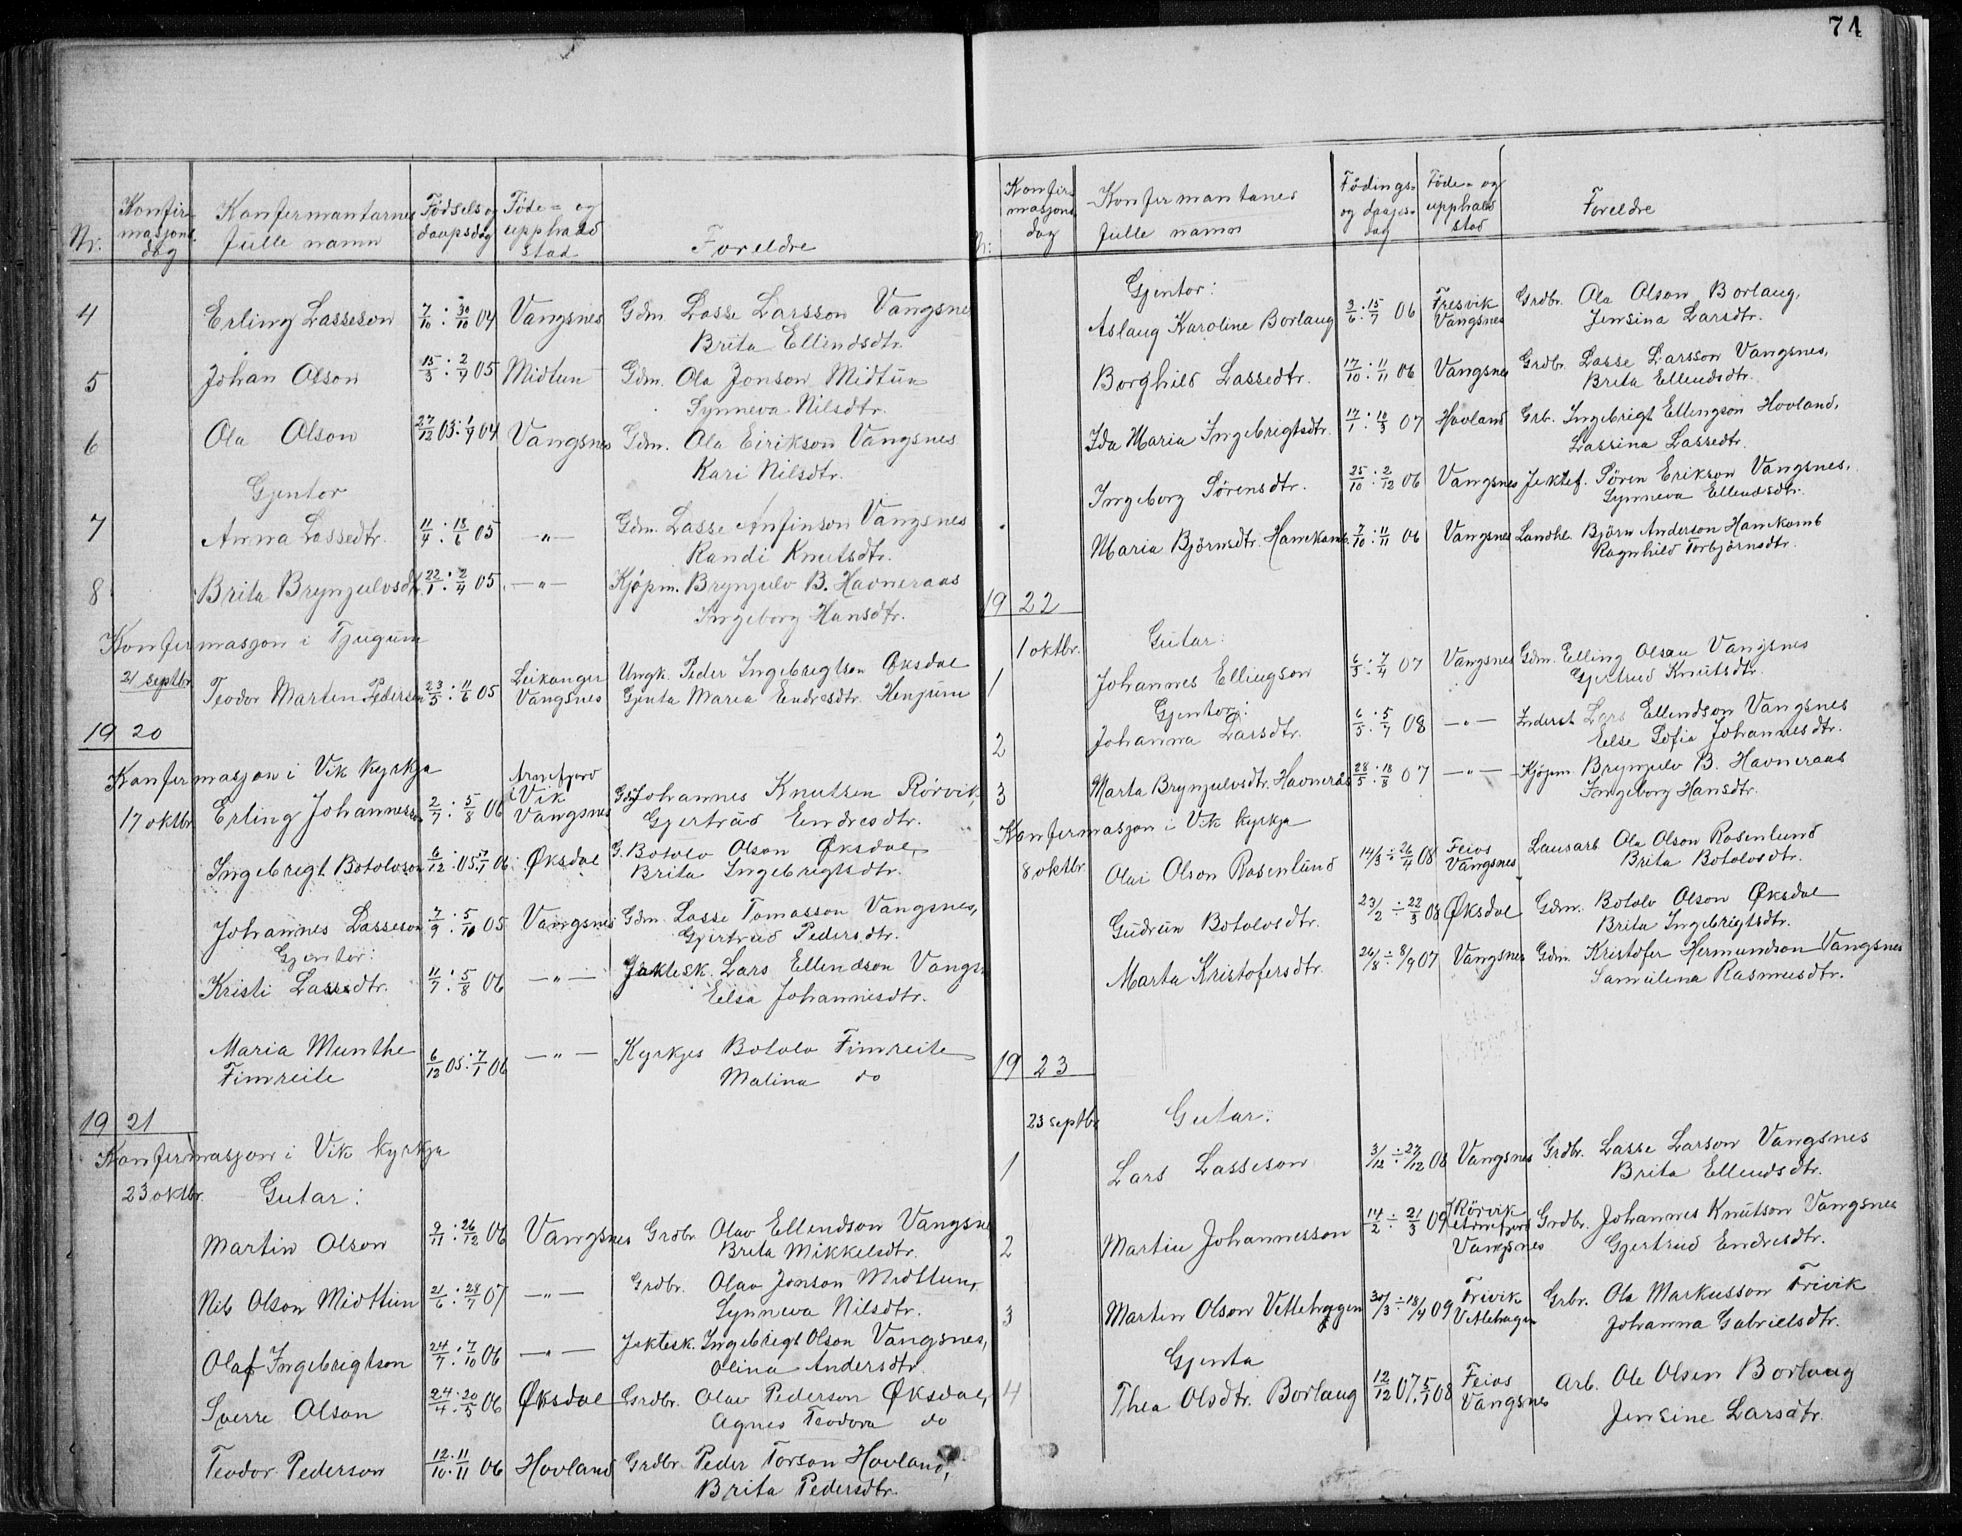 74
Nr. Konfir- Konfermantarnes Fødsels og Føde- og Foreldre
masjons fulle namn daapsdag upphalds
dag stad
4 Erling Lasseson 7/10 : 30/10 04 Vangsnes Gdm Lasse Larsson Vangsnes
Brita Ellendsdtr.
5 Johan Olson 15/3 : 2/7 05 Midtun Gdm. Ola Jonson Midtun
Synneva Nilsdtr.
6 Ola Olson 27/12 03 : 1/4 04 Vangsnes Gdm. Ola Eirikson Vangsnes
Kari Nilsdtr.
Gjentor
7 Anna Lassedtr. 11/4 : 18/6 05 —"— Gdm. Lasse Anfinson Vangsnes
Randi Knutsdtr.
8 Brita Brynjulvsdtr 22/1 : 2/4 05 —"— Kjøpm. Brynjulv B. Havneraas
Ingeborg Hansdtr.
Konfermasjon i Tjugum
21 septbr Teodor Martin Pederson 23/5 : 11/6 05 Leikanger Ungk. Peder Ingebrigtson Øksdal
Vangsnes Gjenta Maria Endresdtr. Henjum
1920
Konfermasjon i Vik kyrkja Arnefjord
i Vik
17 oktbr Erling Johannesson 2/7 : 5/8 06 Vangsnes Gdm Johannes Knutsen Rörvik,
Gjertrud Endresdtr.
Ingebrigt Botolvson 6/12 05 : 7/1 06 Øksdal G. Botolv Olson Øksdal,
Brita Ingebrigtsdtr.
Johannes Lasseson 7/9 : 5/10 05 Vangsnes Gdm. Lasse Tomasson Vangsnes,
Gjertrud Pedersdtr.
Gjentor:
Kristi Larsdtr. 11/7 : 5/8 06 —"— Jektesk. Lars Ellendson Vangsn
Eelsa Johannesdtr.
Maria Munthe 6/12 05 : 7/1 06 —"— Kyrkjes Botolv Fimreite
Fimreite Malina do
1921
Konfermasjon i Vik kyrkja
23 oktbr. Gutar:
Martin Olson 9/11 : 26/12 06 Vangsnes Grdbr. Olav Ellendson Vangsnes
Brita Mikkelsdtr.
Nils Olson Midttun 21/6 : 28/7 07 —"— Grdbr. Olav Jonson Midttun,
Synneva Nilsdtr.
Olaf Ingebrigtson 24/7 : 7/10 06 —"— Jektesk. Ingebrigt Olson Vangsnes,
Olina Andersdtr.
Sverre Olson 24/4 : 20/5 06 Øksdal Grdbr. Olav Pederson Øksdal,
Agnes Teodora do
Teodor Pederson 12/10 : 11/11 06 Hovland Grdbr. Peder Torson Hovland,
Brita Pedersdtr.
Nr: Konfir- Konfermantanes Födings- Føde- og Foreldre
masjons fulle namn og daaps- upphalds
dag dag stad
Gjentor:
Aslaug Karoline Borlaug 3/6 : 15/7 06 Fresvik Grdbr. Ola Olson Borlaug,
Vangsnes Jensina Larsdtr.
Borghild Lassedtr. 17/10 : 11/11 06 Vangsnes Grdbr. Lasse Larsson Vangsnes,
Brita Ellendsdtr.
Ida Maria Ingebrigtsdtr. 17/1 : 10/3 07 Hovland Grb. Ingebrigt Ellingson Hovland,
Lassina Lassedtr.
Ingeborg Sörensdtr. 25/10 : 2/12 06 Vangsnes Jektef. Sören Erikson Vangsnes,
Synneva Ellendsdtr.
Maria Björnsdtr. Hanekamb 7/10 : 11/11 06 Vangsnes Landh. Björn Anderson Hanekamb
Ragnhild Torbjörnsdtr.
1922
1 oktbr. Gutar:
1 Johannes Ellingson 6/3 : 7/4 07 Vangsnes Gdm. Elling Olson Vangsnes
Gjertrud Knutsdtr.
Gjentor:
2 Johanna Larsdtr. 6/5 : 5/7 08 —"— Inderst Lars Ellendson Vangsnes
Eelse Sofia Johannesdtr.
3 Marta Brynjulvsdtr. Havnerås 28/5 : 18/8 07 —"— Kjøpm Brynjulv B. Havneraas
Ingeborg Hansdtr.
Konfermasjon i Vik kyrkja
8 oktbr. Olai Olson Rosenlund 14/3 ÷ 26/4 08 Feios Lausarb Ola Olson Rosenlund
Vangsnes Brita Botolvsdtr.
Gudrun Botolvsdtr. 23/2 ÷ 22/3 08 Øksdal Gdm. Botolv Olson Øksdal
Brita Ingebrigtsdtr.
Marta Kristofersdtr. 26/8 ÷ 8/9 07 Vangsnes Gdm. Kristofer Hermundson Vangsnes
Samulina Rasmusdtr.
1923
23 septbr Gutar:
1 Lars Lasseson 3/12 ÷ 27/12 08 Vangsnes Grdbr. Lasse Larson Vangsnes
Brita Ellendsdtr.
2 Martin Johannesson 14/2 ÷ 21/3 09 Rörvik Grdbr. Johannes Knutson Vangsnes
Arnefjord
Vangsnes Gjertrud Endresdtr.
3 Martin Olson Vettehaugen 30/3 ÷ 18/4 09 Frivik Grbr. Ola Markusson Frivik
Vettehagen Johanna Gabrielsdtr.
Gjenta
4 Thea Olsdtr. Borlaug 12/12 07. 5/1 08 Feios Arb. Ole Olsen Borlaug
Vangsnes Jensine Larsdtr.